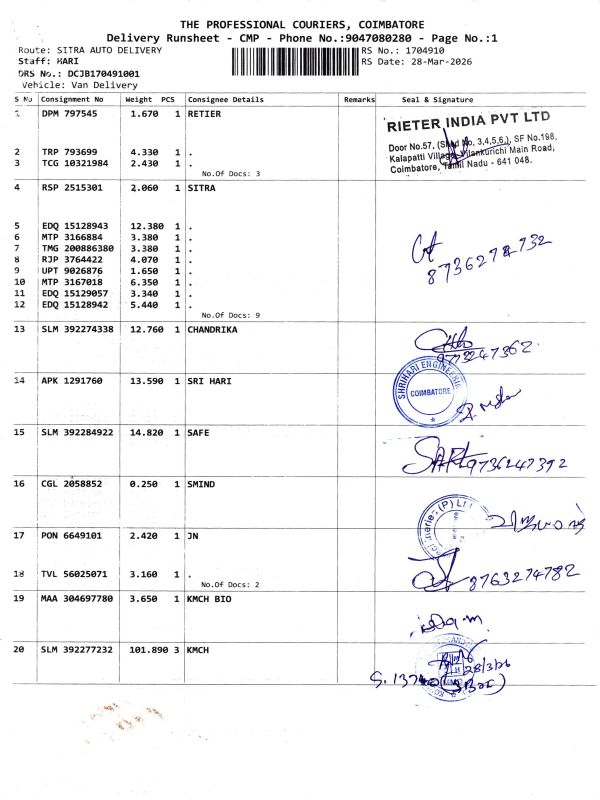 THE PROFESSIONAL COURIERS, COIMBATORE
Delivery Runsheet - CMP - Phone No.:9047080280 - Page No.:1
Route: SITRA AUTO DELIVERY RS No.: 1704910
Staff: HARI RS Date: 28-Mar-2026
DRS No.: DCJB170491001
Vehicle: Van Delivery
S No Consignment No Weight PCS Consignee Details Remarks Seal & Signature
1 DPM 797545 1.670 1 RETIER
RIETER INDIA PVT LTD
Door No.57, (Shed No. 3,4,5,6,), SF No.198,
Kalapatti Village, Vilankurichi Main Road,
Coimbatore, Tamil Nadu - 641 048.
2 TRP 793699 4.330 1 .
3 TCG 10321984 2.430 1 .
No.Of Docs: 3
4 RSP 2515301 2.060 1 SITRA
5 EDQ 15128943 12.380 1 .
6 MTP 3166884 3.380 1 .
7 TMG 200886380 3.380 1 .
8 RJP 3764422 4.070 1 .
9 UPT 9026876 1.650 1 .
10 MTP 3167018 6.350 1 .
11 EDQ 15129057 3.340 1 .
12 EDQ 15128942 5.440 1 .
No.Of Docs: 9
8736274732
13 SLM 392274338 12.760 1 CHANDRIKA
9773247362
14 APK 1291760 13.590 1 SRI HARI
SHRIHARI ENGINEERING
COIMBATORE
15 SLM 392284922 14.820 1 SAFE
9736247392
16 CGL 2058852 0.250 1 SMIND
17 PON 6649101 2.420 1 JN
18 TVL 56025071 3.160 1 .
No.Of Docs: 2
8763274782
19 MAA 304697780 3.650 1 KMCH BIO
20 SLM 392277232 101.890 3 KMCH
28/3/26